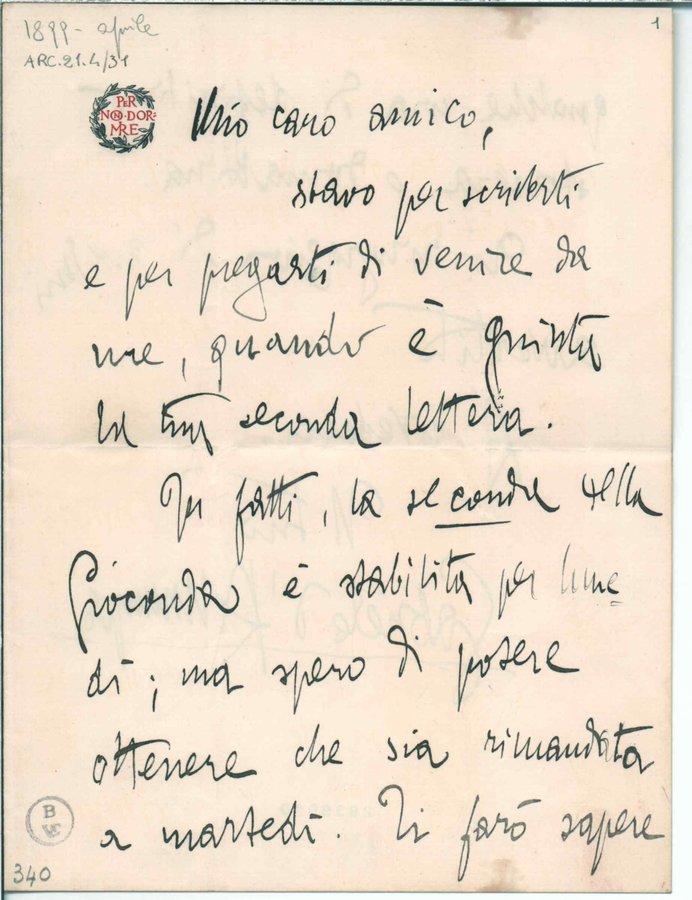 1899 - aprile
ARC.21.4/31
1
PER
NON DOR-
MIRE
Mio caro amico,
stavo per scriverti
e per pregarti di venire da
me, quando è giunta
la tua seconda lettera.
In fatti, la seconda della
Gioconda è stabilita per lune-
dì; ma spero di potere
ottenere che sia rimandata
a martedì. Ti farò sapere
B
340